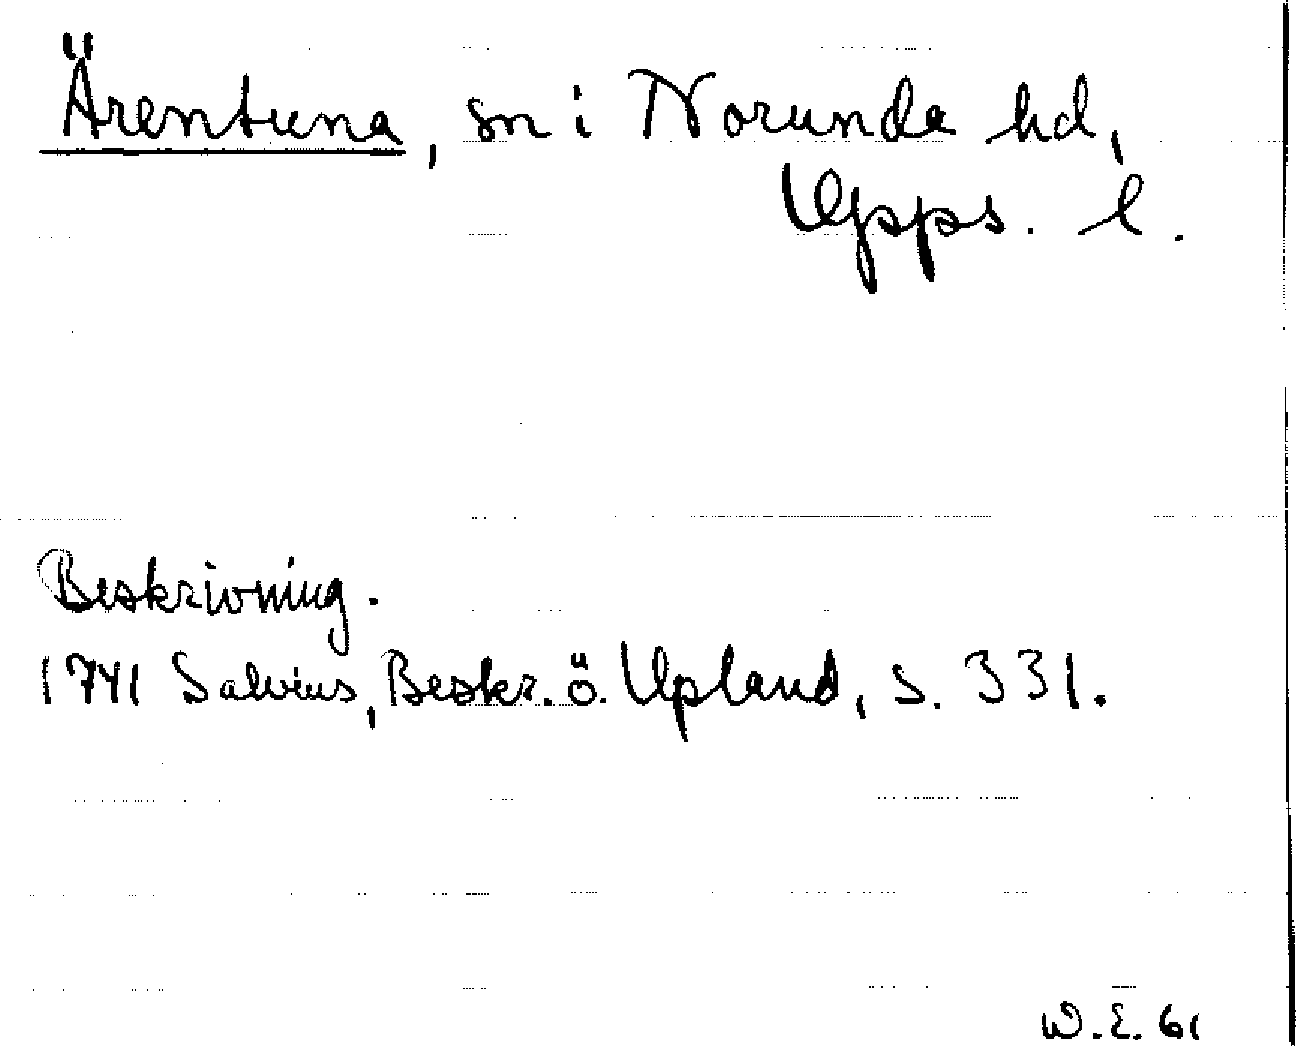 Ärentuna, sn i Norunda hd,
Upps. l.
Beskrivning.
1741 Salvius, Beskr. ö. Upland, s. 331.
W.E. 61